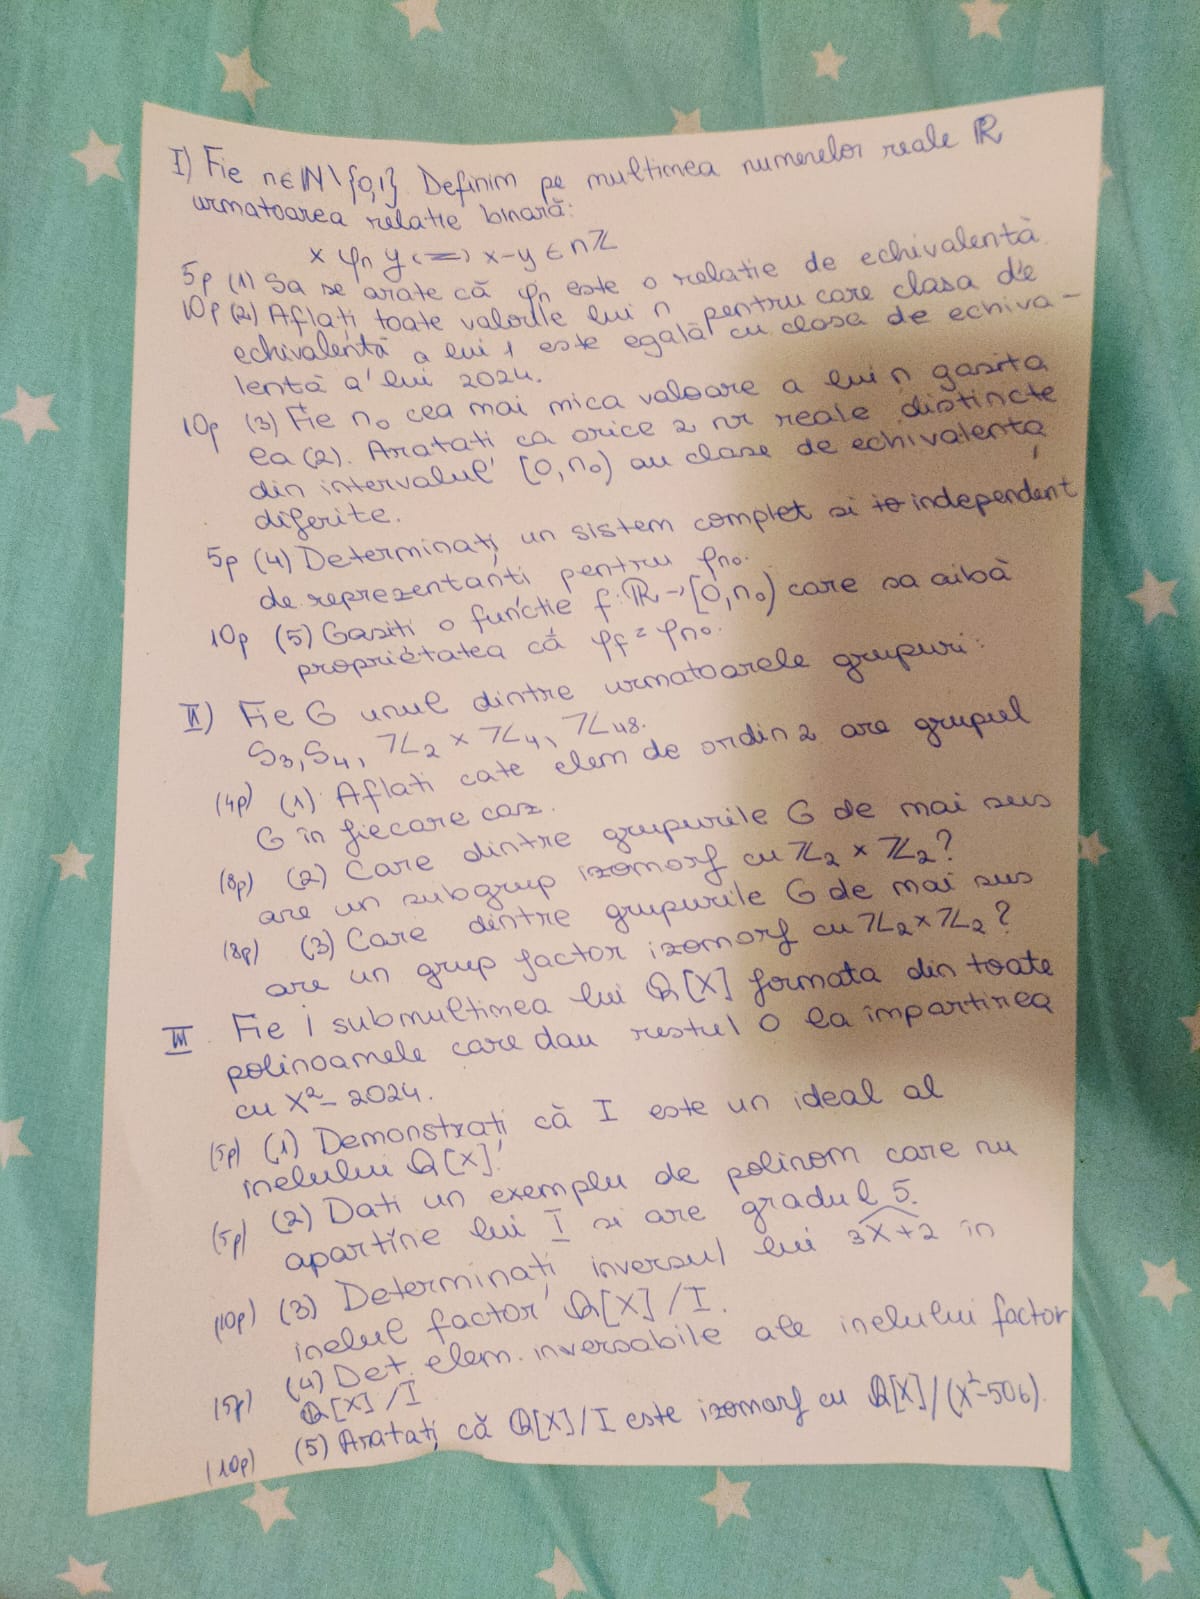 I) Fie n∈ℕ\{0,1}. Definim pe multimea numerelor reale ℝ
urmatoarea relatie binară:
x φn y <=> x-y ∈ nℤ
5p (1) Sa se arate că φn este o relatie de echivalentă
10p (2) Aflați toate valorile lui n pentru care clasa de
echivalență a lui 1 este egală cu clasa de echiva-
lentă a lui 2024.
10p (3) Fie n₀ cea mai mica valoare a lui n gasita
la (2). Aratati ca orice 2 nr reale distincte
din intervalul [0,n₀) au clase de echivalență
diferite.
5p (4) Determinați un sistem complet si independent
de reprezentanti pentru φn₀.
10p (5) Gasiti o functie f:ℝ→[0,n₀) care sa aibă
proprietatea că φf = φn₀.
II) Fie G unul dintre urmatoarele grupuri:
S₃, S₄, ℤ₂ × ℤ₄, ℤ₄₈.
(4p) (1) Aflati cate elem de ordin 2 are grupul
G în fiecare caz.
(8p) (2) Care dintre grupurile G de mai sus
are un subgrup izomorf cu ℤ₂ × ℤ₂?
(8p) (3) Care dintre grupurile G de mai sus
are un grup factor izomorf cu ℤ₂×ℤ₂?
III Fie I submultimea lui ℚ[X] formata din toate
polinoamele care dau restul 0 la impartirea
cu X²-2024.
(5p) (1) Demonstrați că I este un ideal al
inelului ℚ[X].
(5p) (2) Dati un exemplu de polinom care nu
apartine lui I si are gradul 5.
(10p) (3) Determinați inversul lui 3X+2 în
inelul factor ℚ[X]/I.
(5p) (4) Det. elem. inversabile ale inelului factor
ℚ[X]/I
(10p) (5) Aratați că ℚ[X]/I este izomorf cu ℚ[X]/(X²-506).